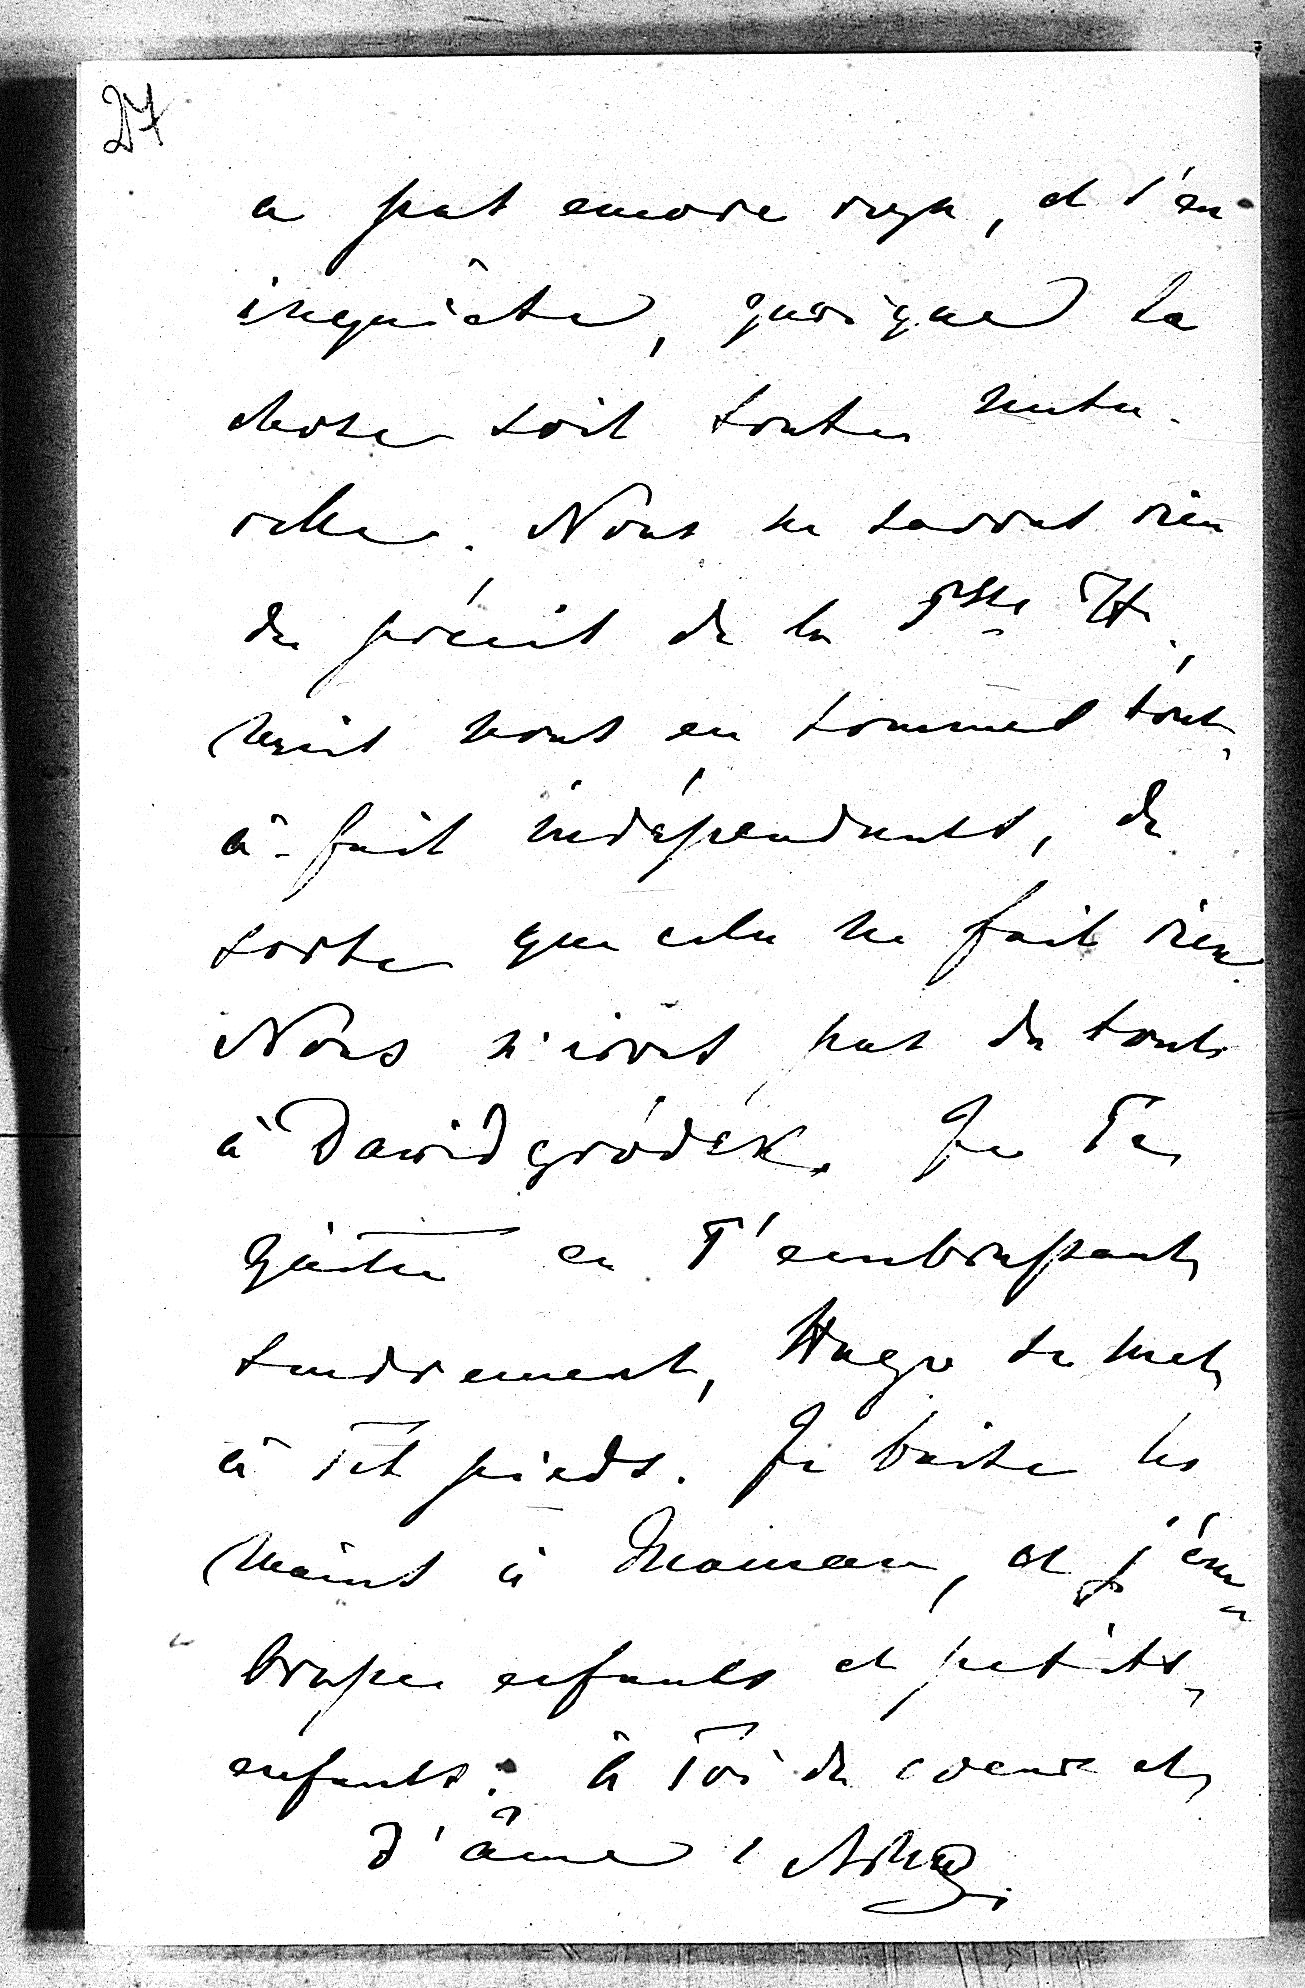 27
a pas encore reçu, et s'en
inquiète, quoique la
chose soit toute natu-
relle. Nous ne savons rien
de précis de la Psse H.,
mais nous en sommes tout-
à-fait indépendants, de
sorte que cela ne fait rien.
Nous n'irons pas du tout
à Dawidgródek. Je Te
quitte en T'embrassant
tendrement, Hugo se met
à Tes pieds. Je baise les
mains à Maman, et j'em-
brasse enfants et petits-
enfants. à Toi de coeur et
d'âme,